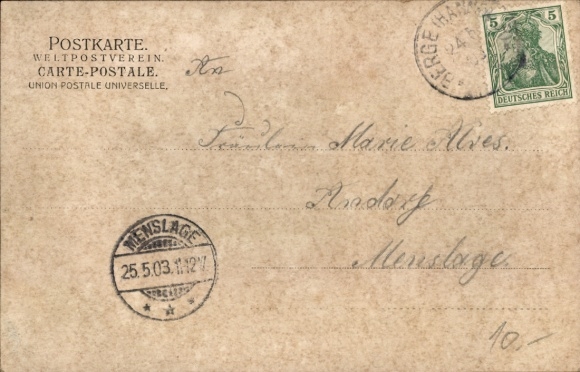 POSTKARTE.
WELTPOSTVEREIN.
CARTE-POSTALE.
UNION POSTALE UNIVERSELLE.
BERGE (HANN
24
5 5
DEUTSCHES REICH
An
Fräulein Marie Alves.
Andorf
Menslage.
MENSLAGE
25.5.03.11-12V.
10.-